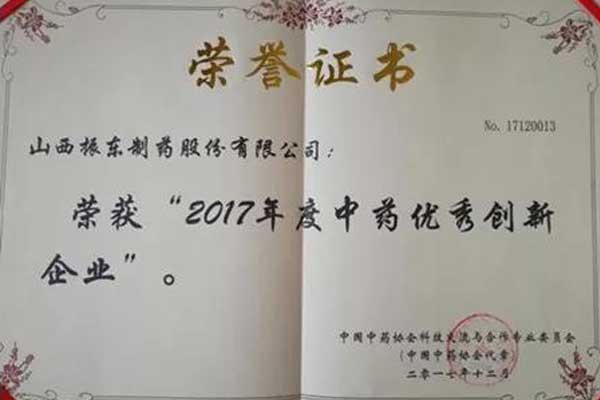 荣誉证书
No. 17120013
山西振东制药股份有限公司：
荣获“2017年度中药优秀创新
企业”。
中国中药协会科技交流与合作专业委员会
（中国中药协会代章）
二〇一七年十二月